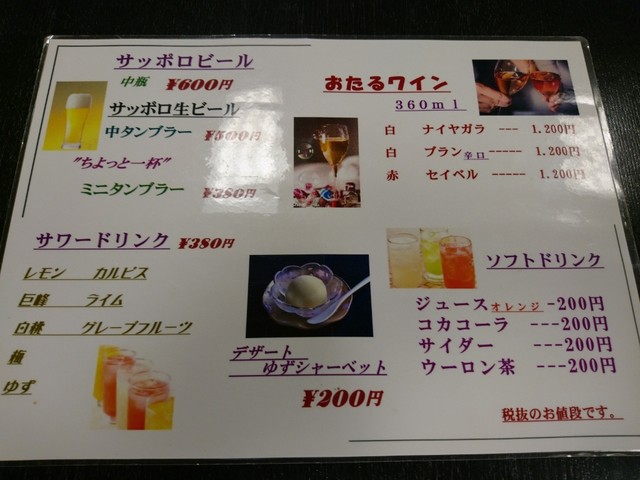 サッポロビール
中瓶 ¥600円
サッポロ生ビール
中タンブラー ¥500円
"ちょっと一杯"
ミニタンブラー ¥380円
おたるワイン
360ml
白 ナイヤガラ --- 1.200円
白 ブラン辛口----- 1.200円
赤 セイベル ---- 1.200円
サワードリンク ¥380円
レモン カルピス
巨峰 ライム
白桃 グレープフルーツ
梅
ゆず
デザート
ゆずシャーベット
¥200円
ソフトドリンク
ジュースオレンジ -200円
コカコーラ ---200円
サイダー ---200円
ウーロン茶 ---200円
税抜のお値段です。